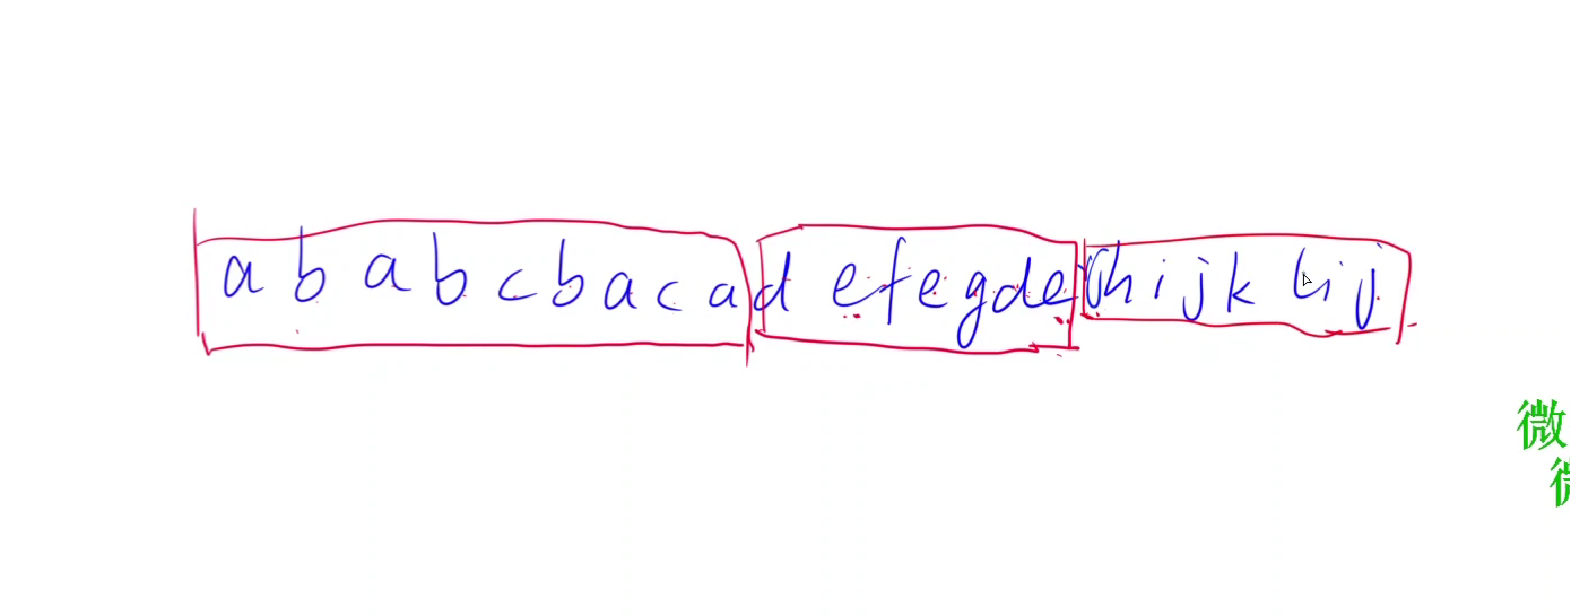 a b a b c b a c a d e f e g d e h i j k l i j
微